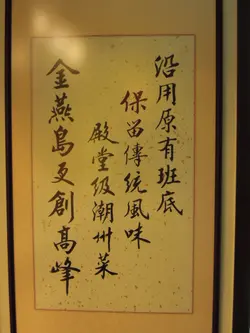 沿用原有班底
保留傳統風味
殿堂級潮州菜
金燕島更創高峰